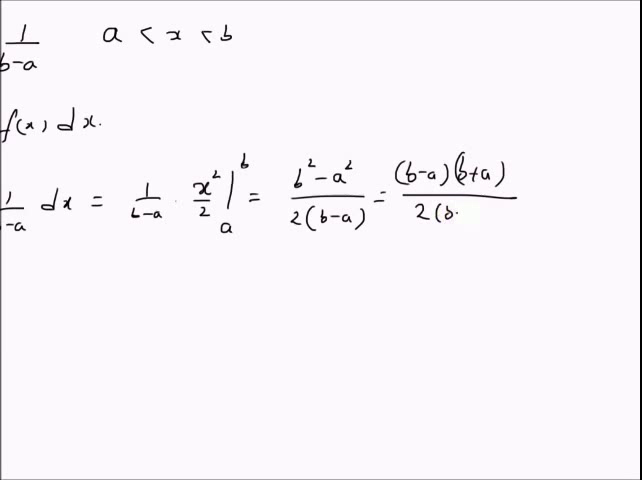 1/(b-a) a < x < b
f(x) dx.
1/(b-a) dx = 1/(b-a) · x²/2 |ₐᵇ = (b²-a²)/(2(b-a)) = (b-a)(b+a)/(2(b-